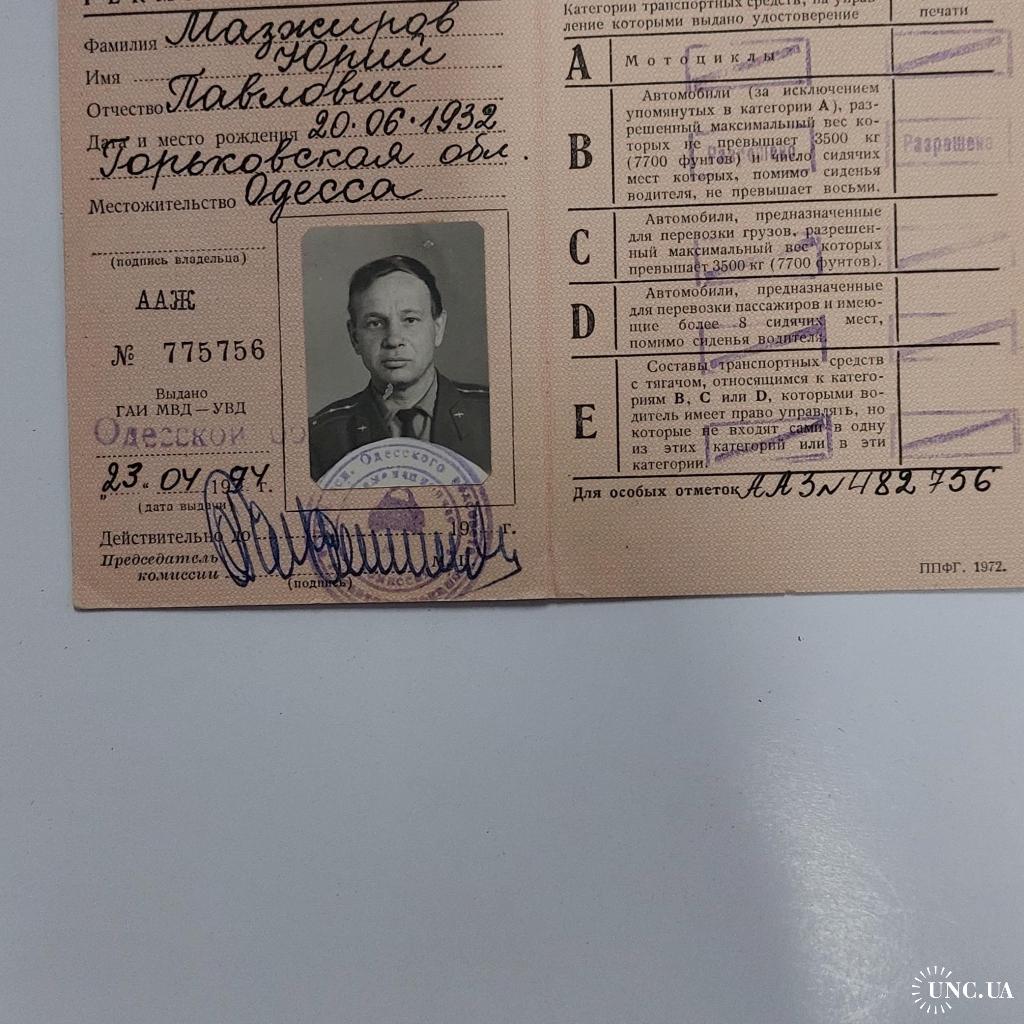 Фамилия Мазжиров
Имя Юрий
Отчество Павлович
Дата и место рождения 20.06.1932
Горьковская обл.
Местожительство Одесса
(подпись владельца)
ААЖ
№ 775756
Выдано
ГАИ МВД—УВД
Одесской
„23" 04 1994 г.
(дата выдачи)
Действительно до 19 г.
Председатель
комиссии
(подпись)
Категории транспортных средств, на управ-
ление которыми выдано удостоверение
печати
A Мотоциклы
B Автомобили (за исключением
упомянутых в категории А), раз-
решенный максимальный вес ко-
торых не превышает 3500 кг
(7700 фунтов) и число сидячих
мест которых, помимо сиденья
водителя, не превышает восьми.
Разрешено
C Автомобили, предназначенные
для перевозки грузов, разрешен-
ный максимальный вес которых
превышает 3500 кг (7700 фунтов).
D Автомобили, предназначенные
для перевозки пассажиров и имею-
щие более 8 сидячих мест,
помимо сиденья водителя.
E Составы транспортных средств
с тягачом, относящимся к катего-
риям B, C или D, которыми во-
дитель имеет право управлять, но
которые не входят сами в одну
из этих категорий или в эти
категории.
Для особых отметок ААЗ № 482756
ППФГ. 1972.
UNC.UA